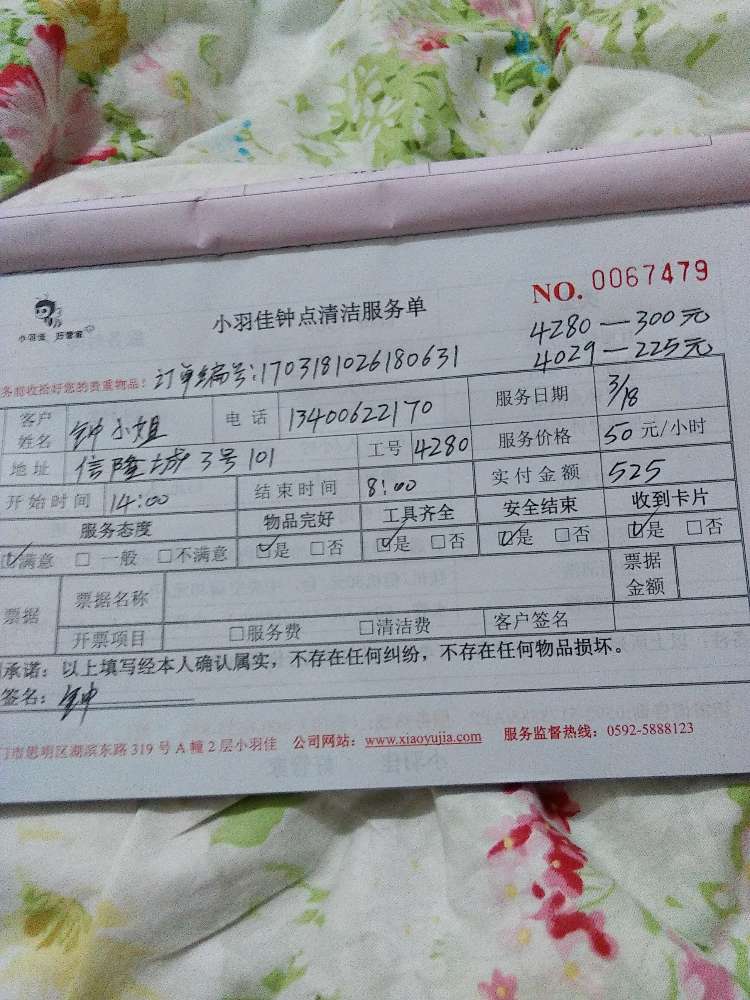 NO. 0067479
小羽佳 好管家
小羽佳钟点清洁服务单
4280—300元
4029—225元
务前收拾好您的贵重物品! 订单编号:1703181026180631
客户姓名 钟小姐 电话 13400622170 服务日期 3/18
地址 信隆城3号101 工号 4280 服务价格 50元/小时
开始时间 14:00 结束时间 8:00 实付金额 525
服务态度 物品完好 工具齐全 安全结束 收到卡片
☑满意 □一般 □不满意 ☑是 □否 ☑是 □否 ☑是 □否 ☑是 □否
票据 票据名称 票据金额
开票项目 □服务费 □清洁费 客户签名
承诺:以上填写经本人确认属实,不存在任何纠纷,不存在任何物品损坏。
签名: 钟
门市思明区湖滨东路319号A幢2层小羽佳 公司网站:www.xiaoyujia.com 服务监督热线:0592-5888123